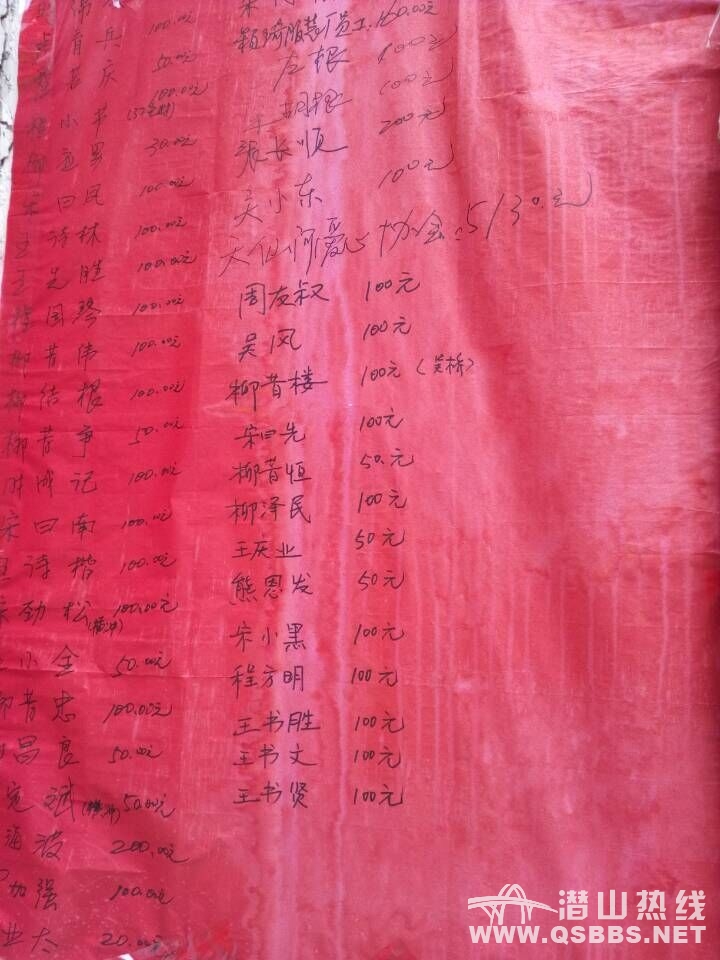 兵 100.00元
颖琦服装厂员工 160.00元
庆 50.00元
左根 100元
小书 100.00元
王胡根 100元
30.00元
张长顺 200元
宋曰民 100.00元
吴小东 100元
王诗林 100.00元
天仙河爱心协会 5130元
王先胜 100.00元
周友叔 100元
程国琴 100.00元
吴凤 100元
柳昔伟 100.00元
柳昔楼 100元(吴桥)
柳结根 100.00元
宋曰先 100元
柳昔争 50.00元
柳昔恒 50元
成记 100.00元
柳泽民 100元
宋曰南 100.00元
王庆业 50元
诗楷 100.00元
熊恩发 50元
劲松 100.00元
宋小黑 100元
小全 50.00元
程方明 100元
昔忠 100.00元
王书胜 100元
昌良 50.00元
王书文 100元
斌 50.00元
王书贤 100元
海波 200.00元
加强 100.00元
业大 20.00元
潜山热线
WWW.QSBBS.NET